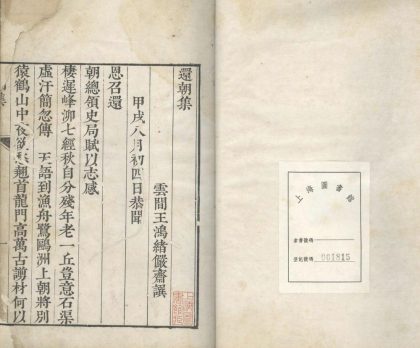 還朝集
雲間王鴻緒儼齋譔
甲戌八月初四日恭聞
恩召還
朝總領史局賦以志感
棲遲峰泖七經秋自分殘年老一丘豈意石渠
虛汗簡忽傳 天語到漁舟鷺鷗洲上朝將別
猿鶴山中夜 翹首龍門高萬古謭材何以
上海圖書館
書號碼
登記號碼 001815